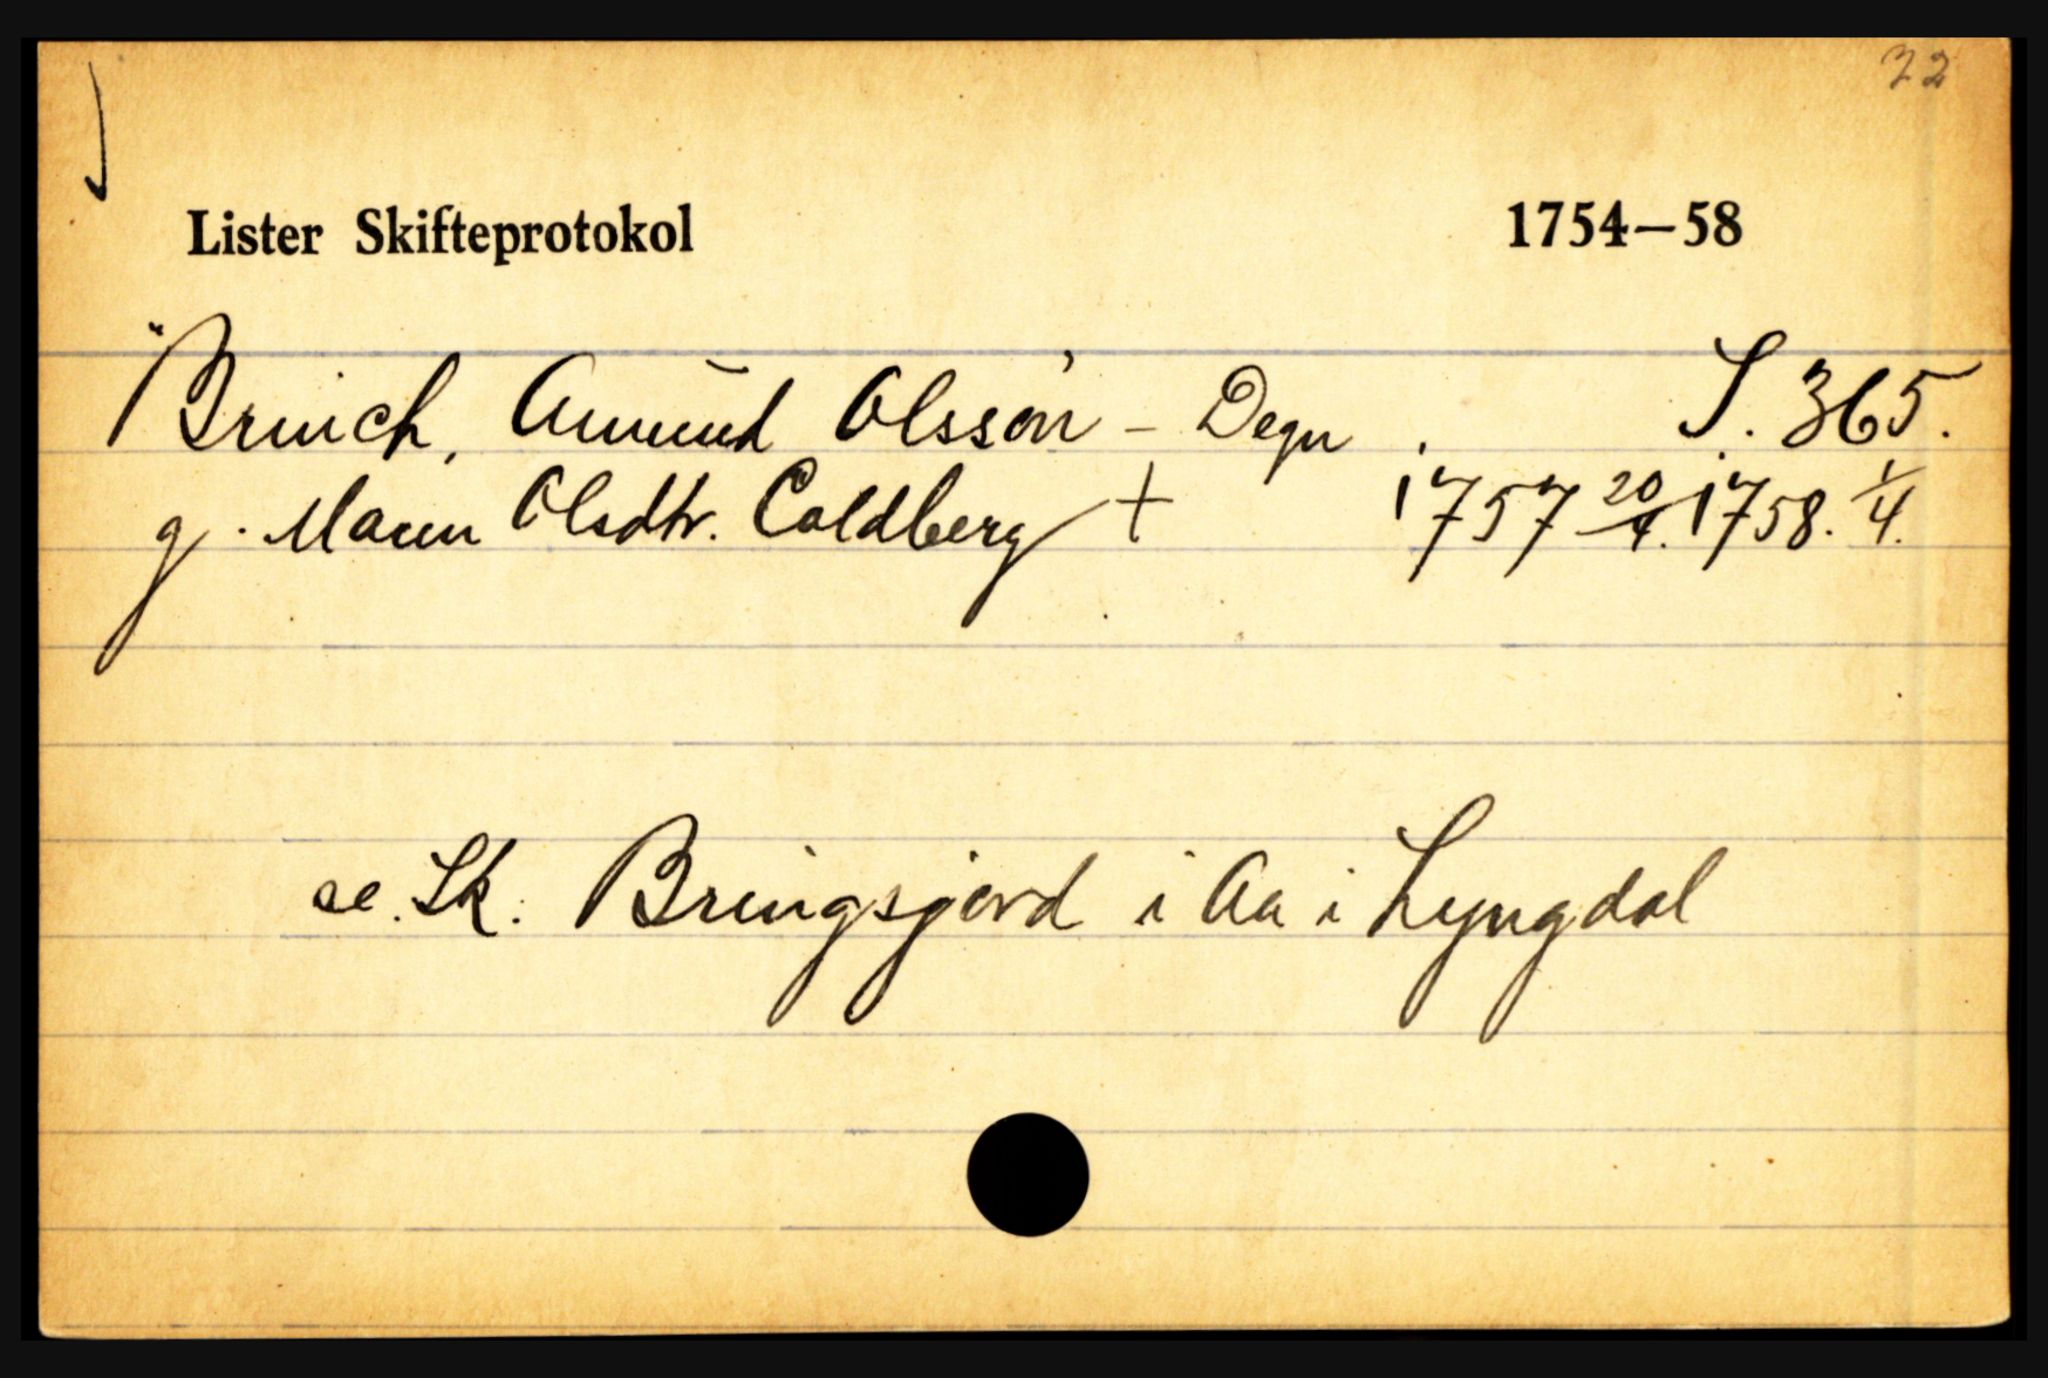 22
Lister Skifteprotokol 1754—58
Bruich, Amund Olssøn - Degn S. 365.
g. Maren Olsdtr. Coldberg + 1757 20/4. 1758. 1/4.
se. Sk. Bringsjord i Aa i Lyngdal